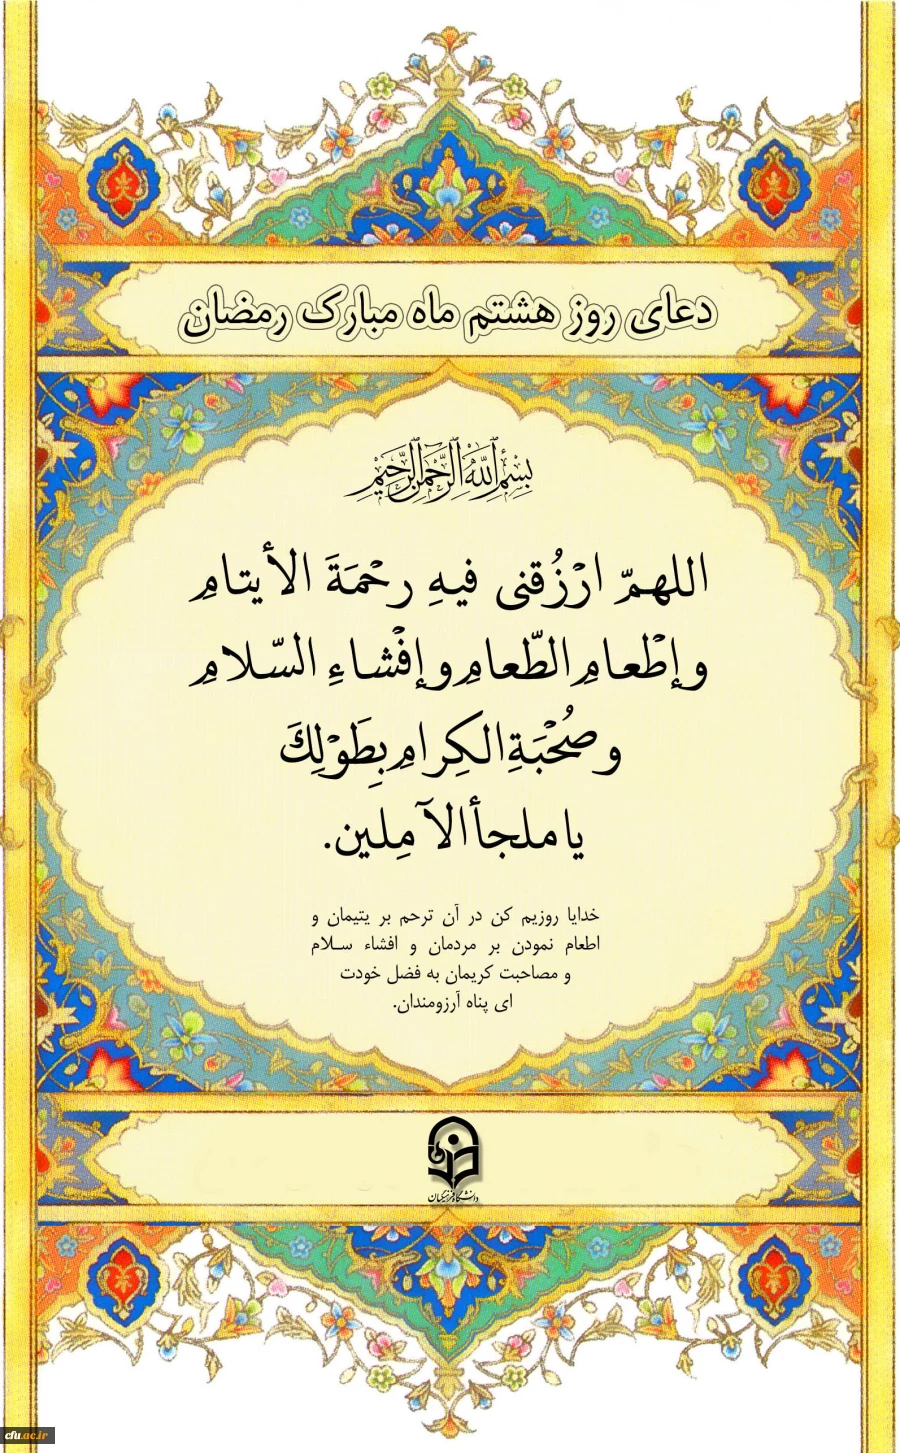 دعای روز هشتم ماه مبارک رمضان
بِسْمِ اللَّهِ الرَّحْمَنِ الرَّحِيمِ
اللهمّ ارْزُقنی فیهِ رحْمَةَ الأیتامِ
وإطْعامِ الطّعامِ وإفْشاءِ السّلامِ
وصُحْبَةِ الكِرامِ بِطَوْلِكَ
یا ملجأ الآمِلین.
خدایا روزیم کن در آن ترحم بر یتیمان و
اطعام نمودن بر مردمان و افشاء سـلام
و مصاحبت کریمان به فضل خودت
ای پناه آرزومندان.
دانشگاه فرهنگیان
cfu.ac.ir